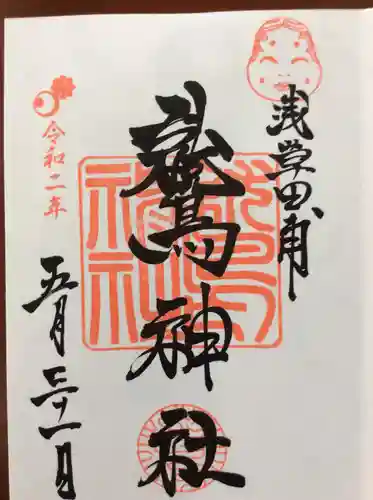 浅草田甫
鷲神社
令和二年
五月三十一日